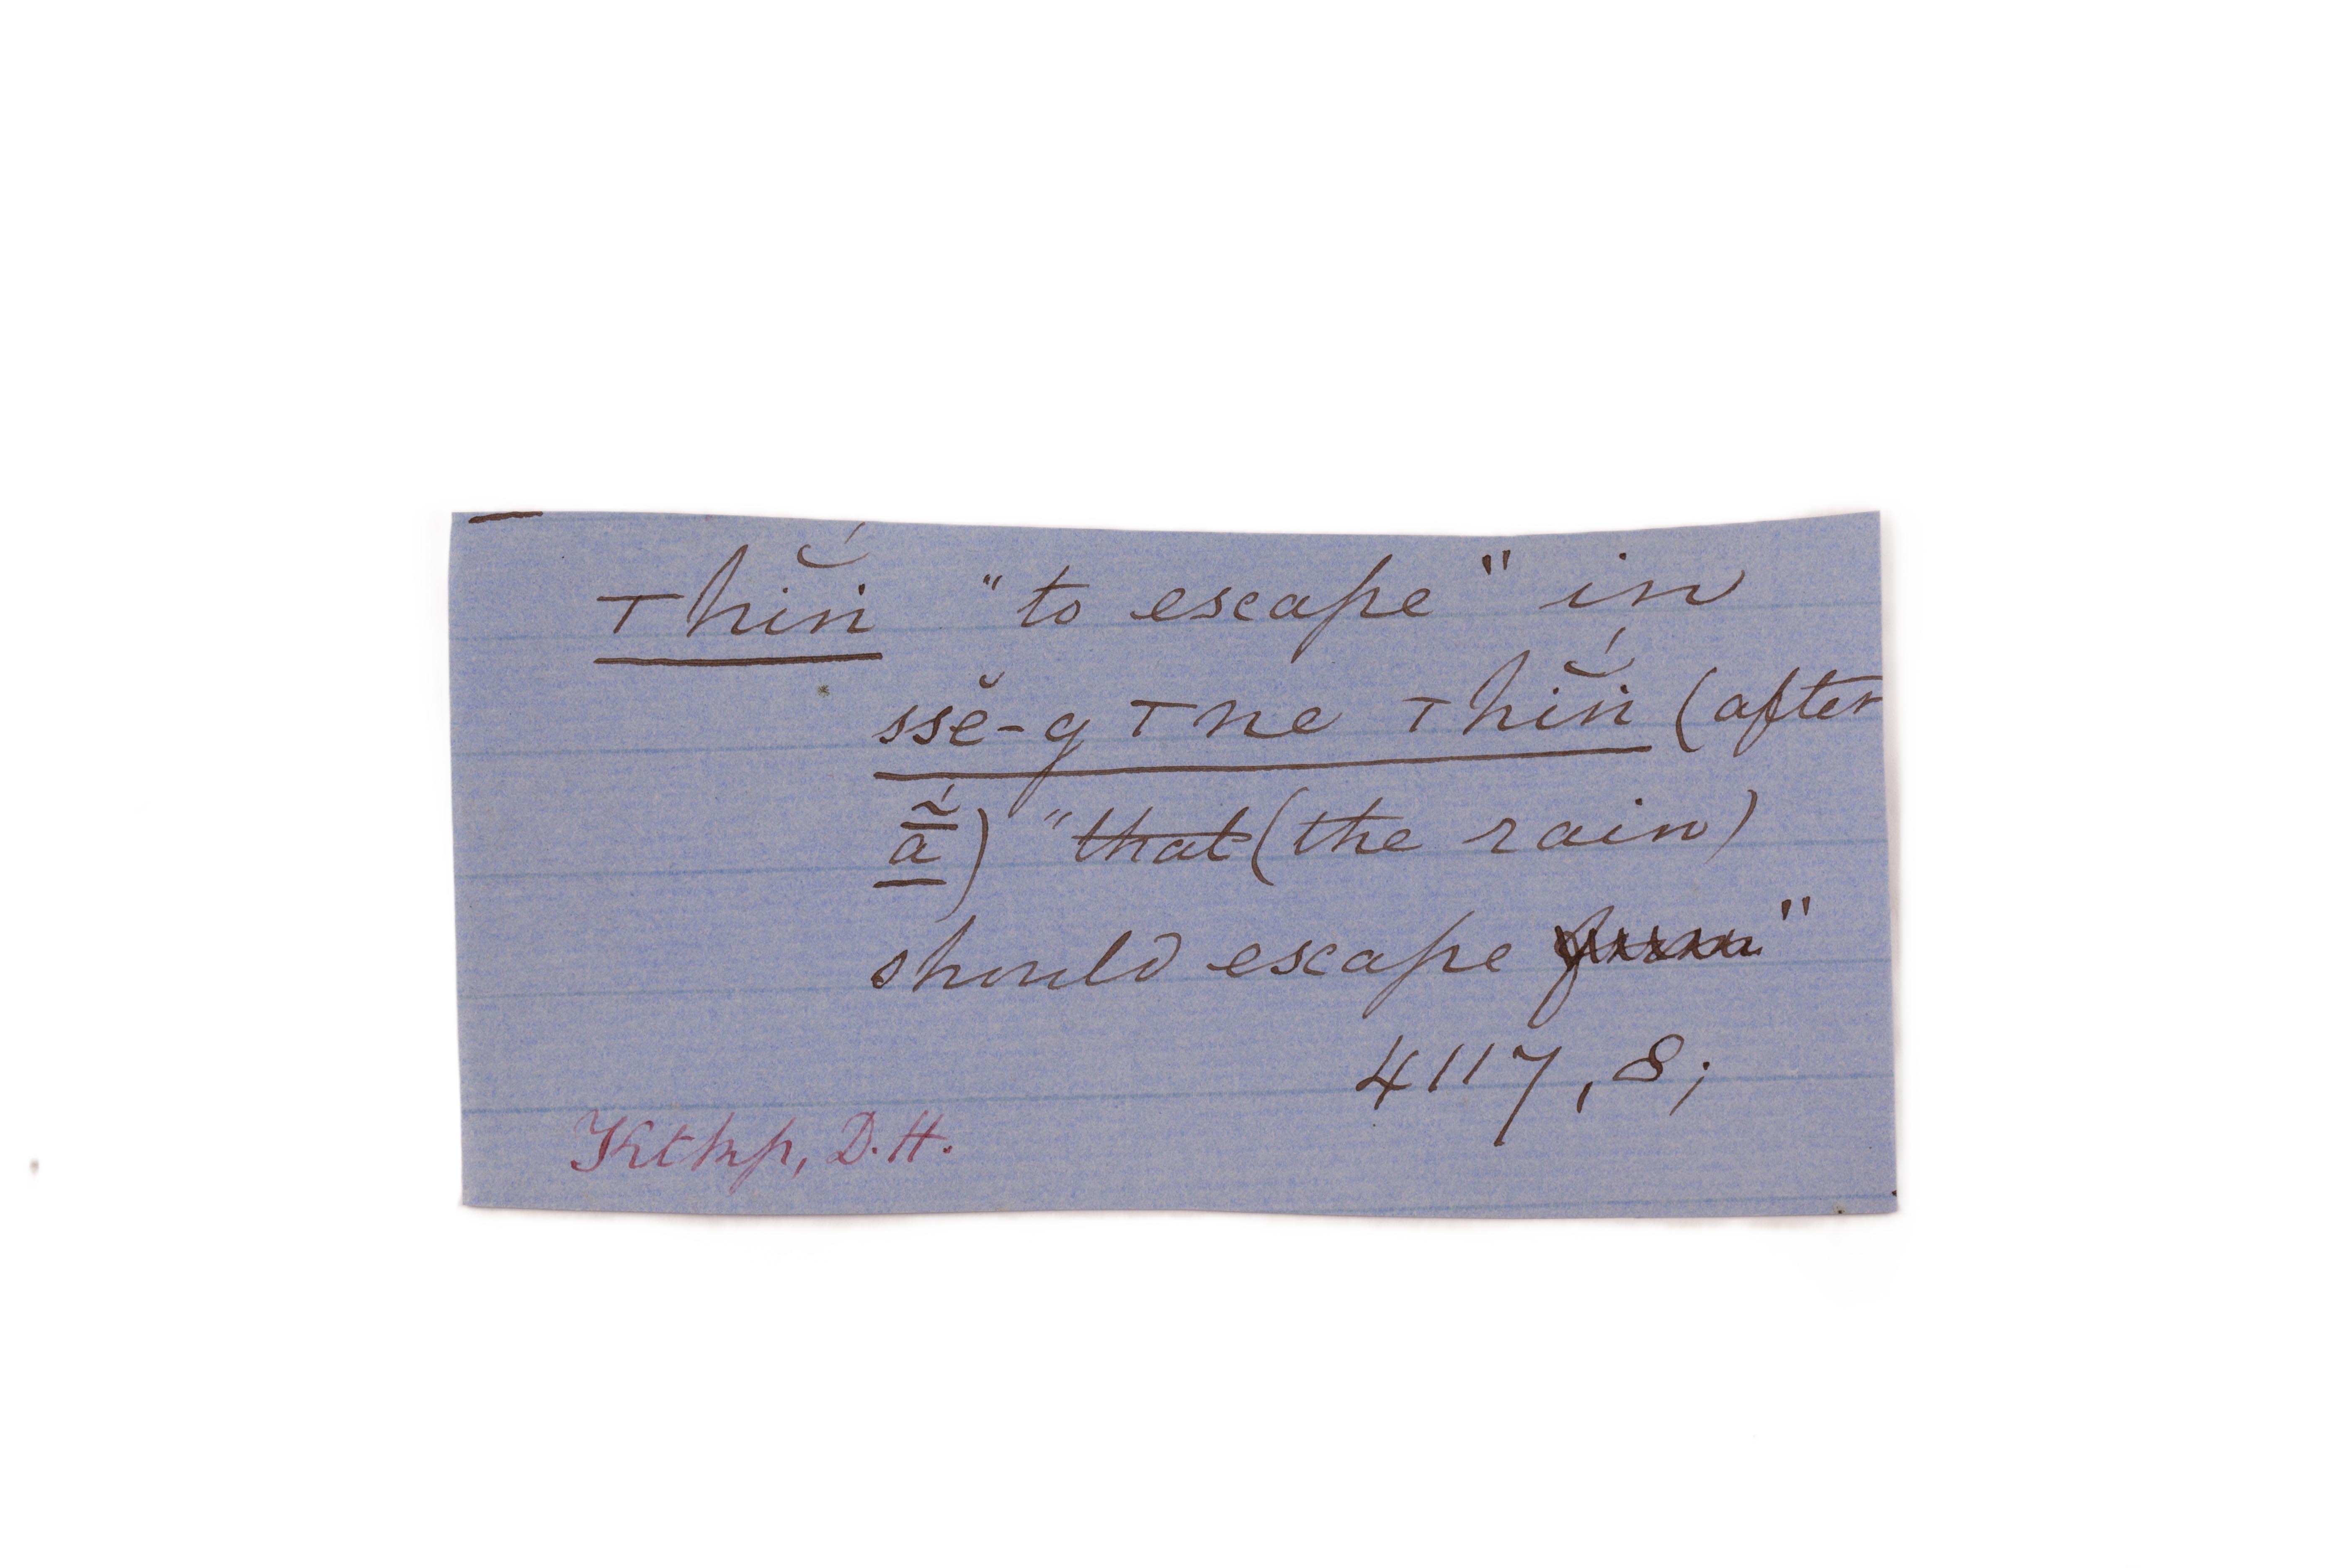 ⊤hĭ́n "to escape" in
ssĕ-g ⊤ne ⊤hĭ́n (after
ā̰́) "that (the rain)
should escape "
4117, 8;
D.H.